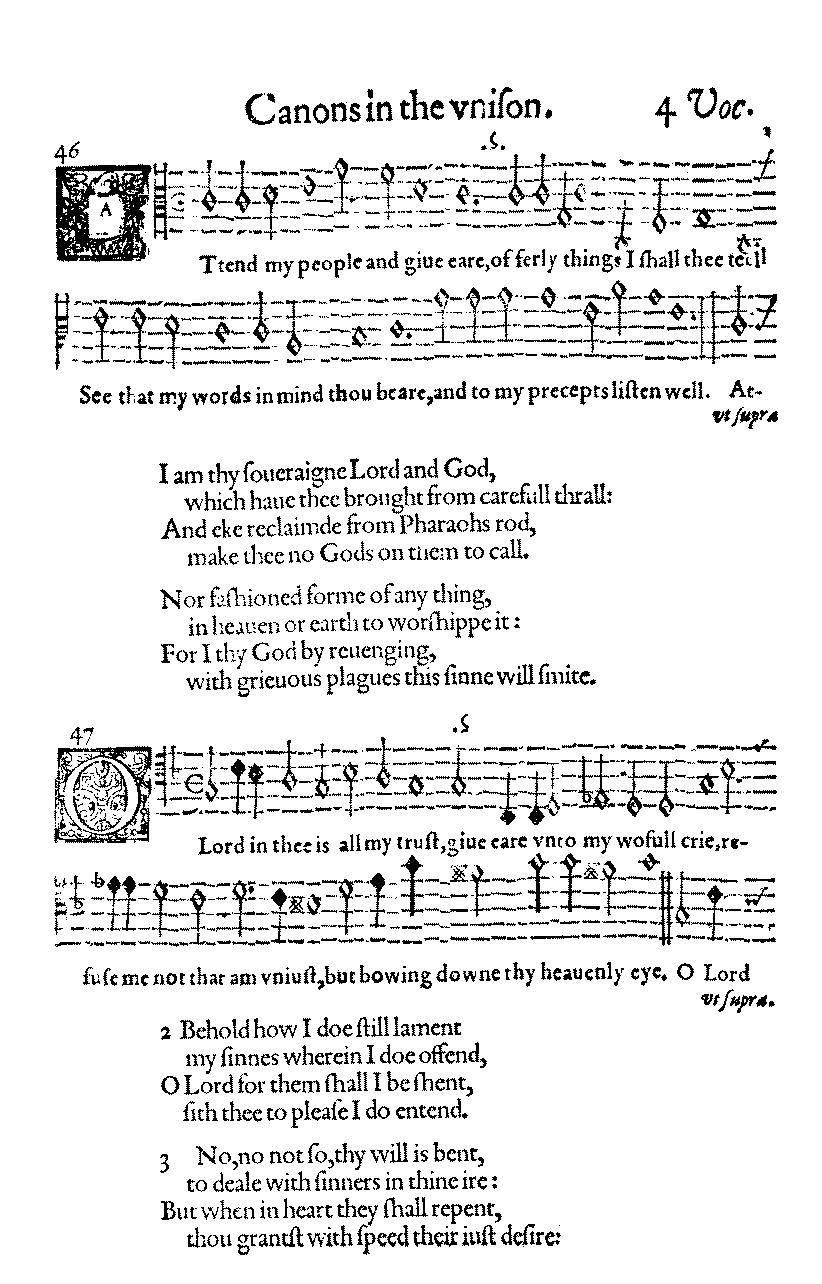 Canons in the vniſon. 4 Voc.
.S.
46
A
Ttend my people and giue eare, of ferly things I ſhall thee tell
See that my words in mind thou beare, and to my precepts liſten well. At-
vt ſupra
I am thy ſoueraigne Lord and God,
which haue thee brought from carefull thrall:
And eke reclaimde from Pharaohs rod,
make thee no Gods on them to call.
Nor faſhioned forme of any thing,
in heauen or earth to worſhippe it:
For I thy God by reuenging,
with grieuous plagues this ſinne will ſmite.
.S
47
O
Lord in thee is all my truſt, giue eare vnto my wofull crie, re-
fuſe me not that am vniuſt, but bowing downe thy heauenly eye. O Lord
vt ſupra.
2 Behold how I doe ſtill lament
my ſinnes wherein I doe offend,
O Lord for them ſhall I be ſhent,
ſith thee to pleaſe I do entend.
3 No, no not ſo, thy will is bent,
to deale with ſinners in thine ire:
But when in heart they ſhall repent,
thou grantſt with ſpeed their iuſt deſire: